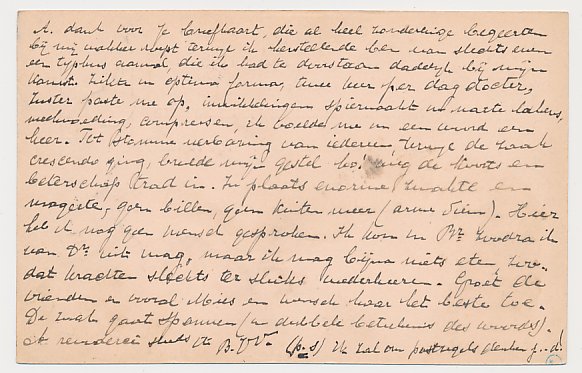 A. dank voor je briefkaart, die al heel zonderlinge begeerten
bij mij wakker roept terwijl ik herstellende ben van slechts even
een typhus aanval, die ik had te doorstaan dadelijk bij mijn
komst. Ziekte in optima forma, twee keer per dag dokter,
zuster paste me op, inwikkelingen spiernaakt in natte lakens,
melkvoeding, compressen, ik voelde me in een woord een
heer. Tot stomme verbazing van iedereen, terwijl de zaak
crescendo ging, brulde mijn gestel ho! ging de koorts en
beterschap trad in. In plaats enorme zwakte en
magerte, geen billen, geen kuiten meer (arme Sien). Hier
heb ik nog geen mensch gesproken. Ik kom in Br. zoodra ik
van Dr uit mag, maar ik mag bijna niets eten, zoo-
dat krachten slechts ter sluiks wederkeeren. Groet de
vrienden en vooral Mies en wensch haar het beste toe.
De zaak gaat spannen (in dubbele beteekenis des woords).
à rendere steeds tt B. (p.s) ik zal om postzegels denken j..d!